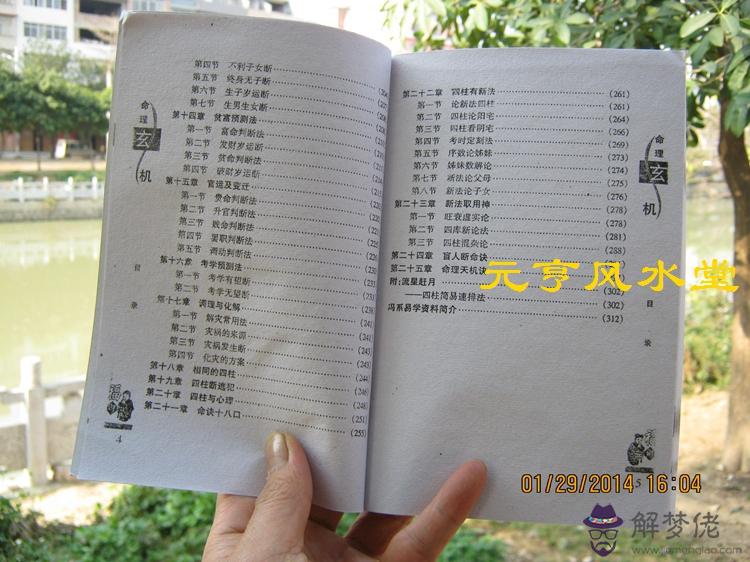 第四节 不利子女断
第五节 终身无子断
第六节 生子岁运断
第七节 生男生女断
第十四章 贫富预测法
第一节 富命判断法
第二节 发财岁运断
第三节 贫命判断法
第四节 破财岁运断
第十五章 官运及变迁
第一节 贵命判断法
第二节 升官判断法
第三节 贱命判断法
第四节 罢职判断法
第五节 调动判断法
第十六章 考学预测法
第一节 考学有望断
第二节 考学无望断
第十七章 调理与化解
第一节 解灾常用法
第二节 灾祸的来源
第三节 灾祸发生断
第四节 化灾的方案
第十八章 相同的四柱 (244)
第十九章 四柱断逃犯 (246)
第二十章 四柱与心理 (248)
第二十一章 命诀十八口 (251)
(255)
4
命理玄机
目录
第二十二章 四柱有新法 (261)
第一节 论新法四柱 (261)
第二节 四柱论阳宅 (264)
第三节 四柱看阴宅 (266)
第四节 考时定刻法 (269)
第五节 序数论姊妹 (273)
第六节 姊妹数断论 (274)
第七节 新法论父母 (275)
第八节 新法论子女 (276)
第二十三章 新法取用神 (278)
第一节 旺衰虚实论 (278)
第二节 四库新论法 (281)
第三节 四柱混杂论 (288)
第二十四章 盲人断命诀
第二十五章 命理天机诀
附:流星赶月 (302)
——四柱简易速排法 (302)
冯系易学资料简介 (312)
命理玄机
目录
5
元亨风水堂
01/29/2014 16:04
解梦佬
www.jiemenglao.com